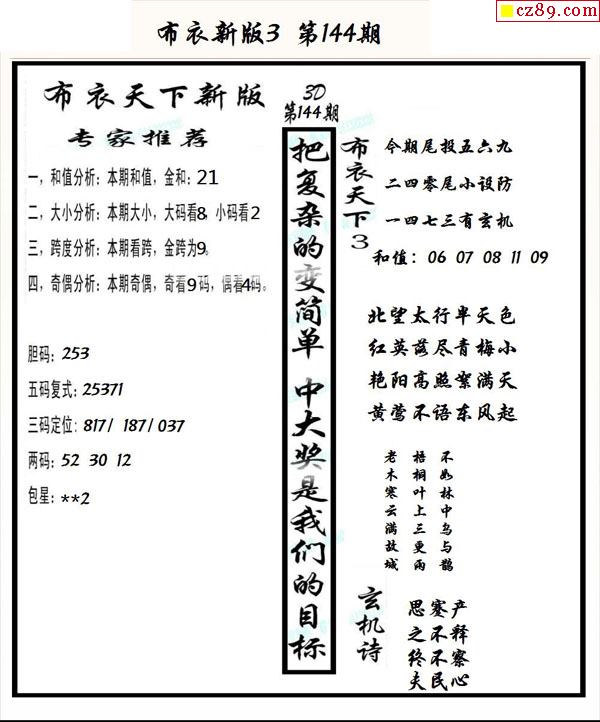 cz89.com
布衣新版3 第144期
布衣天下新版
专家推荐
一，和值分析：本期和值，金和：21
二，大小分析：本期大小，大码看8，小码看2
三，跨度分析：本期看跨，金跨为9。
四，奇偶分析：本期奇偶，奇看9码，偶看4码。
胆码：253
五码复式：25371
三码定位：817/ 187/ 037
两码：52 30 12
包星：**2
3D
第144期
把复杂的变简单 中大奖是我们的目标
布衣天下3
今期尾投五六九
二四零尾小设防
一四七三有玄机
和值：06 07 08 11 09
北望太行半天色
红英落尽青梅小
艳阳高照絮满天
黄莺不语东风起
不如林中乌与鹊
梧桐叶上三更雨
老木寒云满故城
玄机诗
思蹇产
之不释
终不察
夫民心